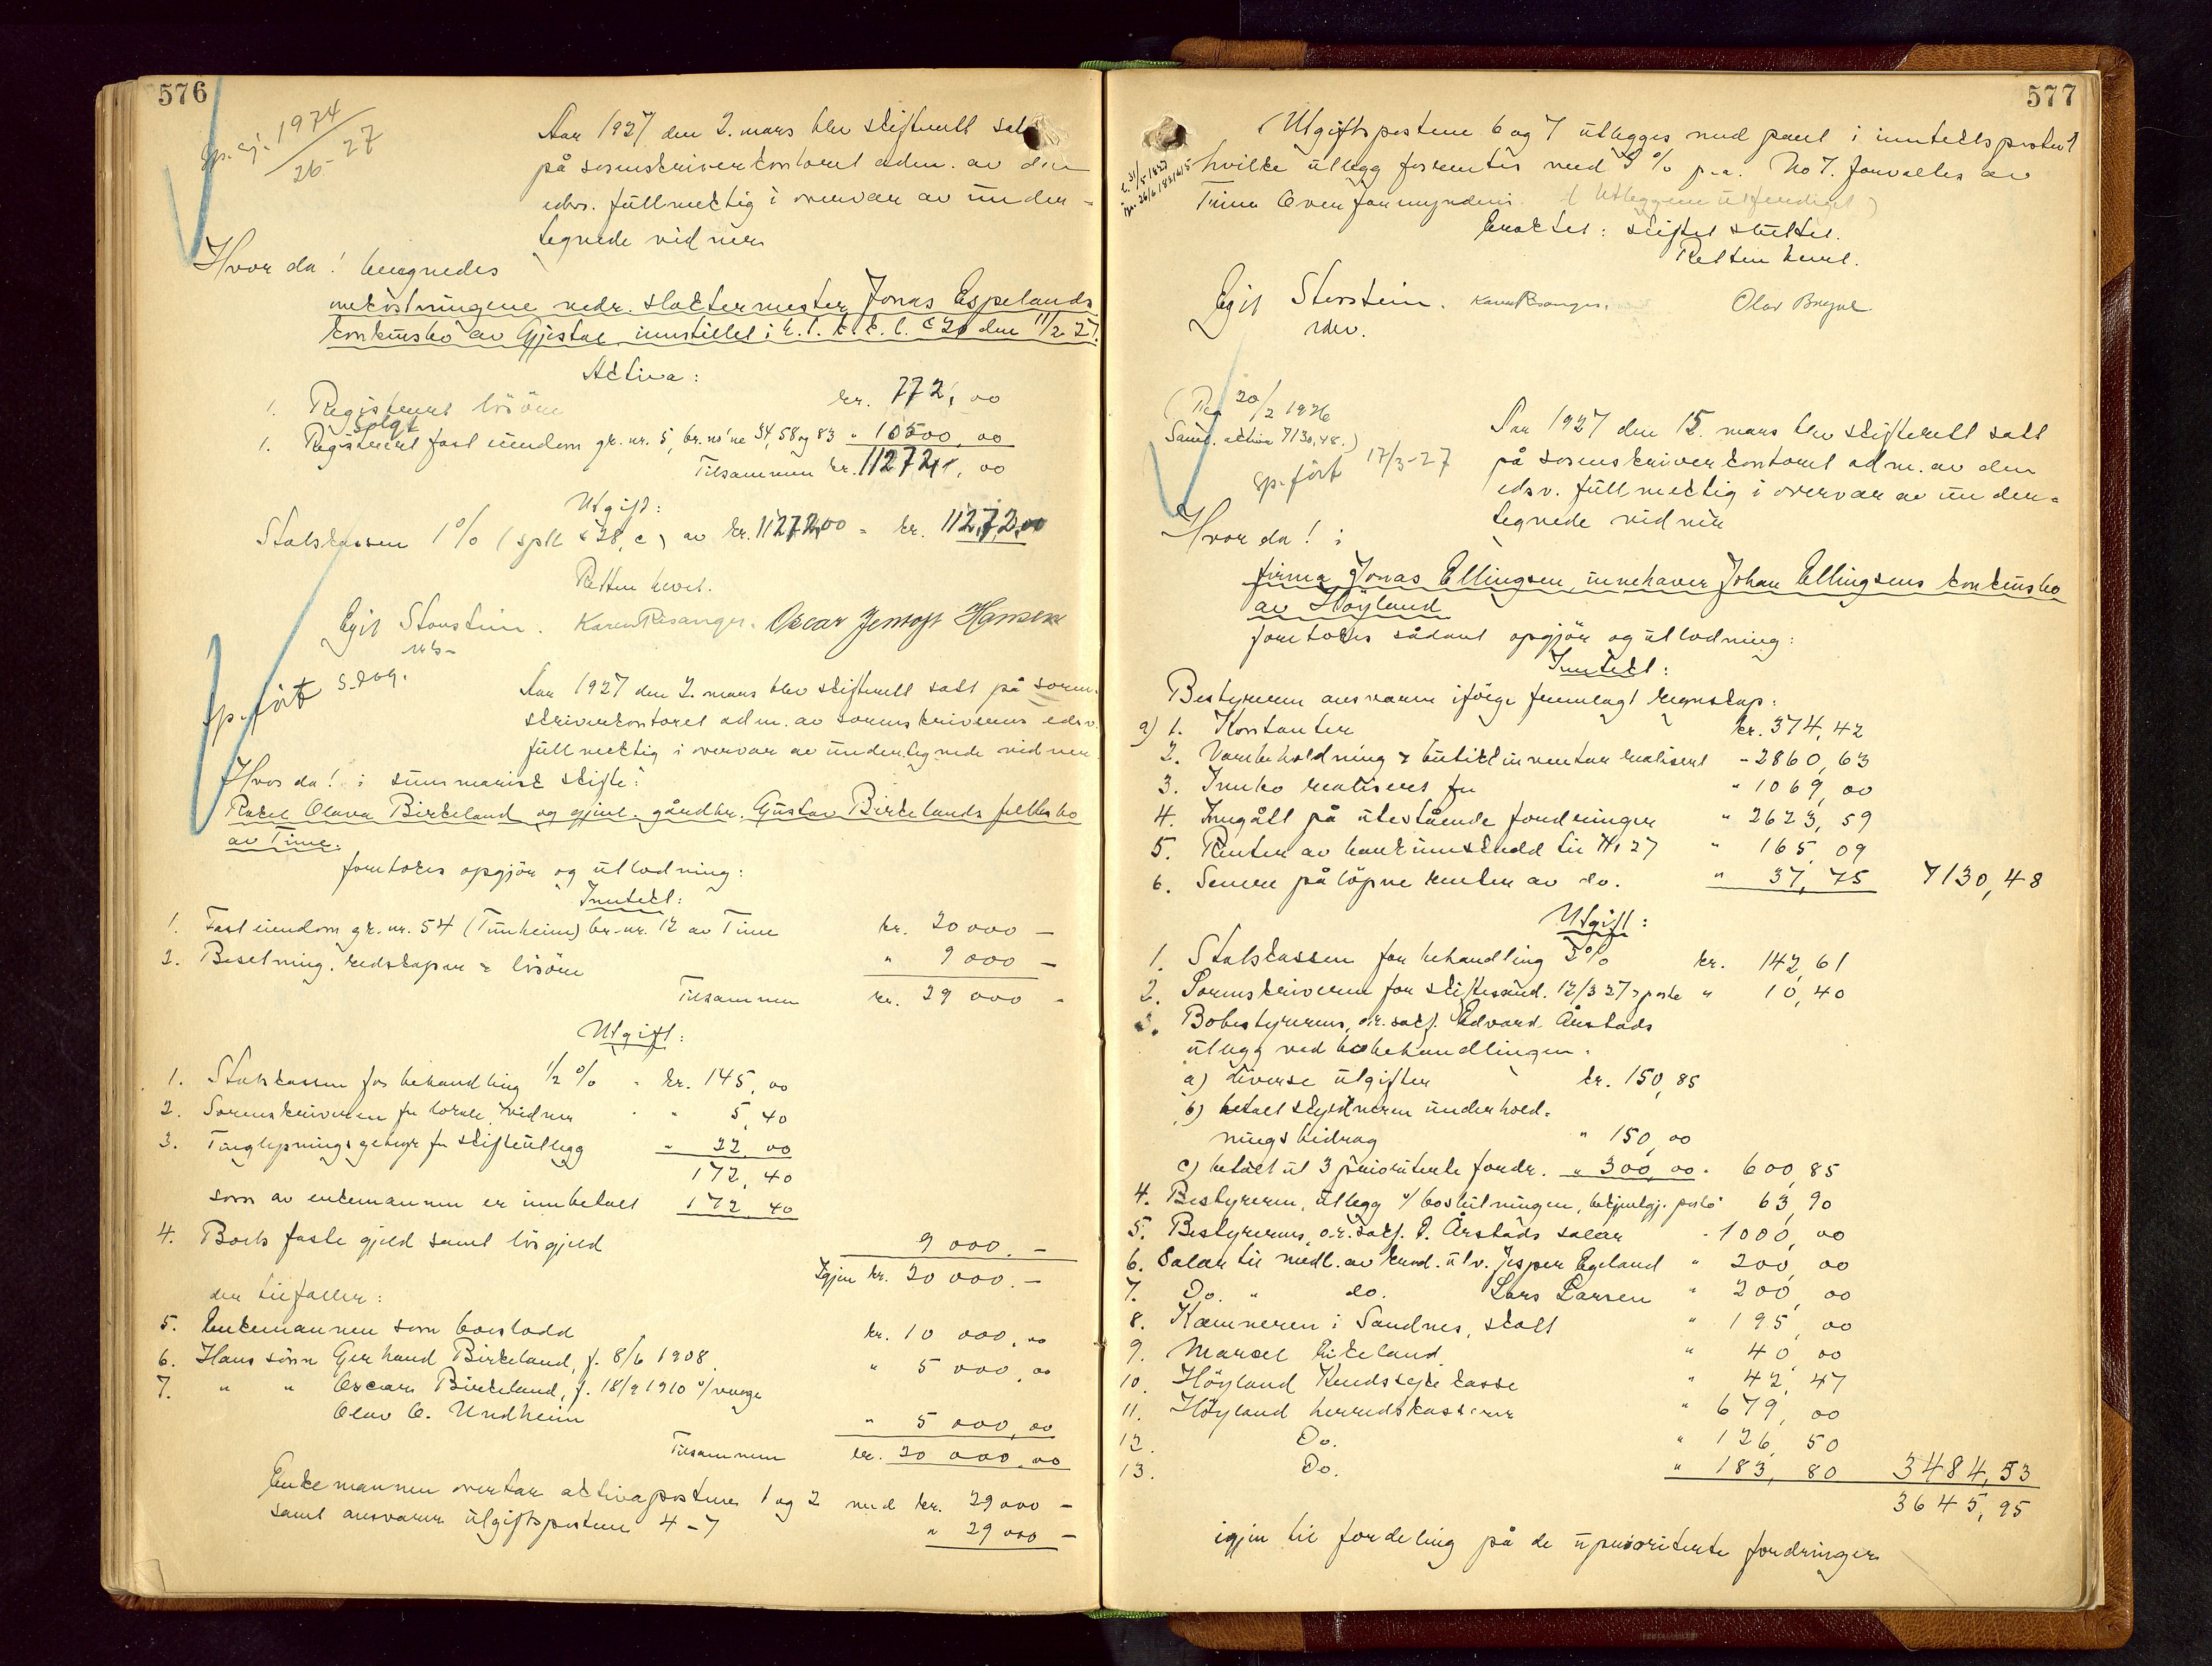 576
sp. 1974
26-27
Aar 1927 den 2. mars blev skifterett satt
på sorenskriverkontoret adm. av den
edsv. fullmektig i overvær av under-
tegnede vidner
Hvor da! beregnedes
omkostningene vedr. slaktermester Jonas Espelands
konkursbo av Gjestal innstillet i h. t. k. k. l. § 20 den 11/2 27.
Activa:
1. Registrert lösöre kr. 772, 00
solgt
1. Registrert fast eiendom gr. nr. 5, br. no'ne 34, 58 og 83 " 10500, 00
Tilsammen kr. 11272, 00
Utgift:
Statskassen 1% (spl. § 28, c) av kr. 11272,00 = kr. 112,72
Retten hevet.
Egil Storstein. Karen Risanger. Oscar Jentoft Hansen
edsv.
sp. fört S. 209.
Aar 1927 den 2. mars blev skifterett satt på soren-
skriverkontoret adm. av sorenskriverens edsv.
fullmektig i overvær av undertegnede vidner
Hvor da! i summarisk skifte:
Rakel Olava Birkeland og gjenl. gårdbr. Gustav Birkelands fellesbo
av Time.
foretokes opgjör og utlodning:
Inntekt:
1. Fast eiendom gr. nr. 54 (Tunheim) br. nr. 12 av Time kr. 20000 -
2. Besetning, redskaper & lösöre " 9000 -
Tilsammen kr. 29000 -
Utgift:
1. Statskassen for behandling 1/2 % " kr. 145, 00
2. Sorenskriveren for lokale, vidner " " 5, 40
3. Tinglysningsgebyr for skifteutlegg " 22, 00
172, 40
som av enkemannen er innbetalt 172, 40
4. Boets faste gjeld samt lösgjeld 9000. -
Igjen kr. 20000. -
der tilfaller:
5. Enkemannen som boslodd kr. 10 000, 00
6. Hans sönn Gerhard Birkeland, f. 8/6 1908 " 5 000, 00
7. " " Oscar Birkeland, f. 18/9 1910 v/ verge
Olav O. Undheim " 5 000, 00
Tilsammen kr. 20 000, 00
Enkemannen overtar aktivapostene 1 og 2 med kr. 29000 -
samt ansvarer utgiftspostene 4-7 " 29000 -
577
Utgiftspostene 6 og 7 utlegges med pant i inntektspost 1
hvilke utlegg forrentes med 5 % p.a. No 7. forvaltes av
Time Overformynderi. (Utleggene utferdiget)
Enoktet: skiftet sluttet.
Retten hevet.
Egil Storstein. Karen Risanger. Olav
edsv.
(Reg 20/2 1926
Saml. aktiva 7130,48.)
sp. fört 17/3-27
Aar 1927 den 15. mars blev skifterett satt
på sorenskriverkontoret adm. av den
edsv. fullmektig i overvær av under-
tegnede vidner
Hvor da! i
firma Jonas Ellingsen, innehaver Johan Ellingsens konkursbo
av Höyland
foretokes sådant opgjör og utlodning:
Inntekt:
Bestyreren ansvarer ifölge fremlagt regnskap:
a) 1. Kontanter kr. 374, 42
2. Varebeholdning & butikkinventar realisert " 2860, 63
3. Innbo realisert for " 1069, 00
4. Inngått på utestående fordringer " 2623, 59
5. Renter av bankinnskudd til 1/1 27 " 165, 09
6. Senere pålöpne renter av do. " 37, 75 7130, 48
Utgift:
1. Statskassen for behandling 2% kr. 142, 61
2. Sorenskriveren for skiftesaml. 12/3 27 & porto " 10, 40
3. Bobestyrerens, o.r. sakf. Edvard Årstads
utlegg ved bobehandlingen.
a) diverse utgifter kr. 150, 85
b) betalt skyldneren underhold-
ningsbidrag " 150, 00
c) betalt ut 3 prioriterte fordr. " 300, 00. 600, 85
4. Bestyreren, utlegg v/ boslutningen, bekjentgj. porto 63, 90
5. Bestyrerens, o.r. sakf. E. Årstads salær " 1000, 00
6. Salær til medl. av kred. utv. Jesper Egeland " 200, 00
7. Do. " do. Lars Larsen " 200, 00
8. Kæmneren i Sandnes, skatt " 195, 00
9. Marsel Eikeland " 40, 00
10. Höyland Kredssyke kasse " 42, 47
11. Höyland herredskasserer " 679, 00
12. Do. " 126, 50
13. Do. " 183, 80 3484, 53
3645, 95
igjen til fordeling på de uprioriterte fordringer